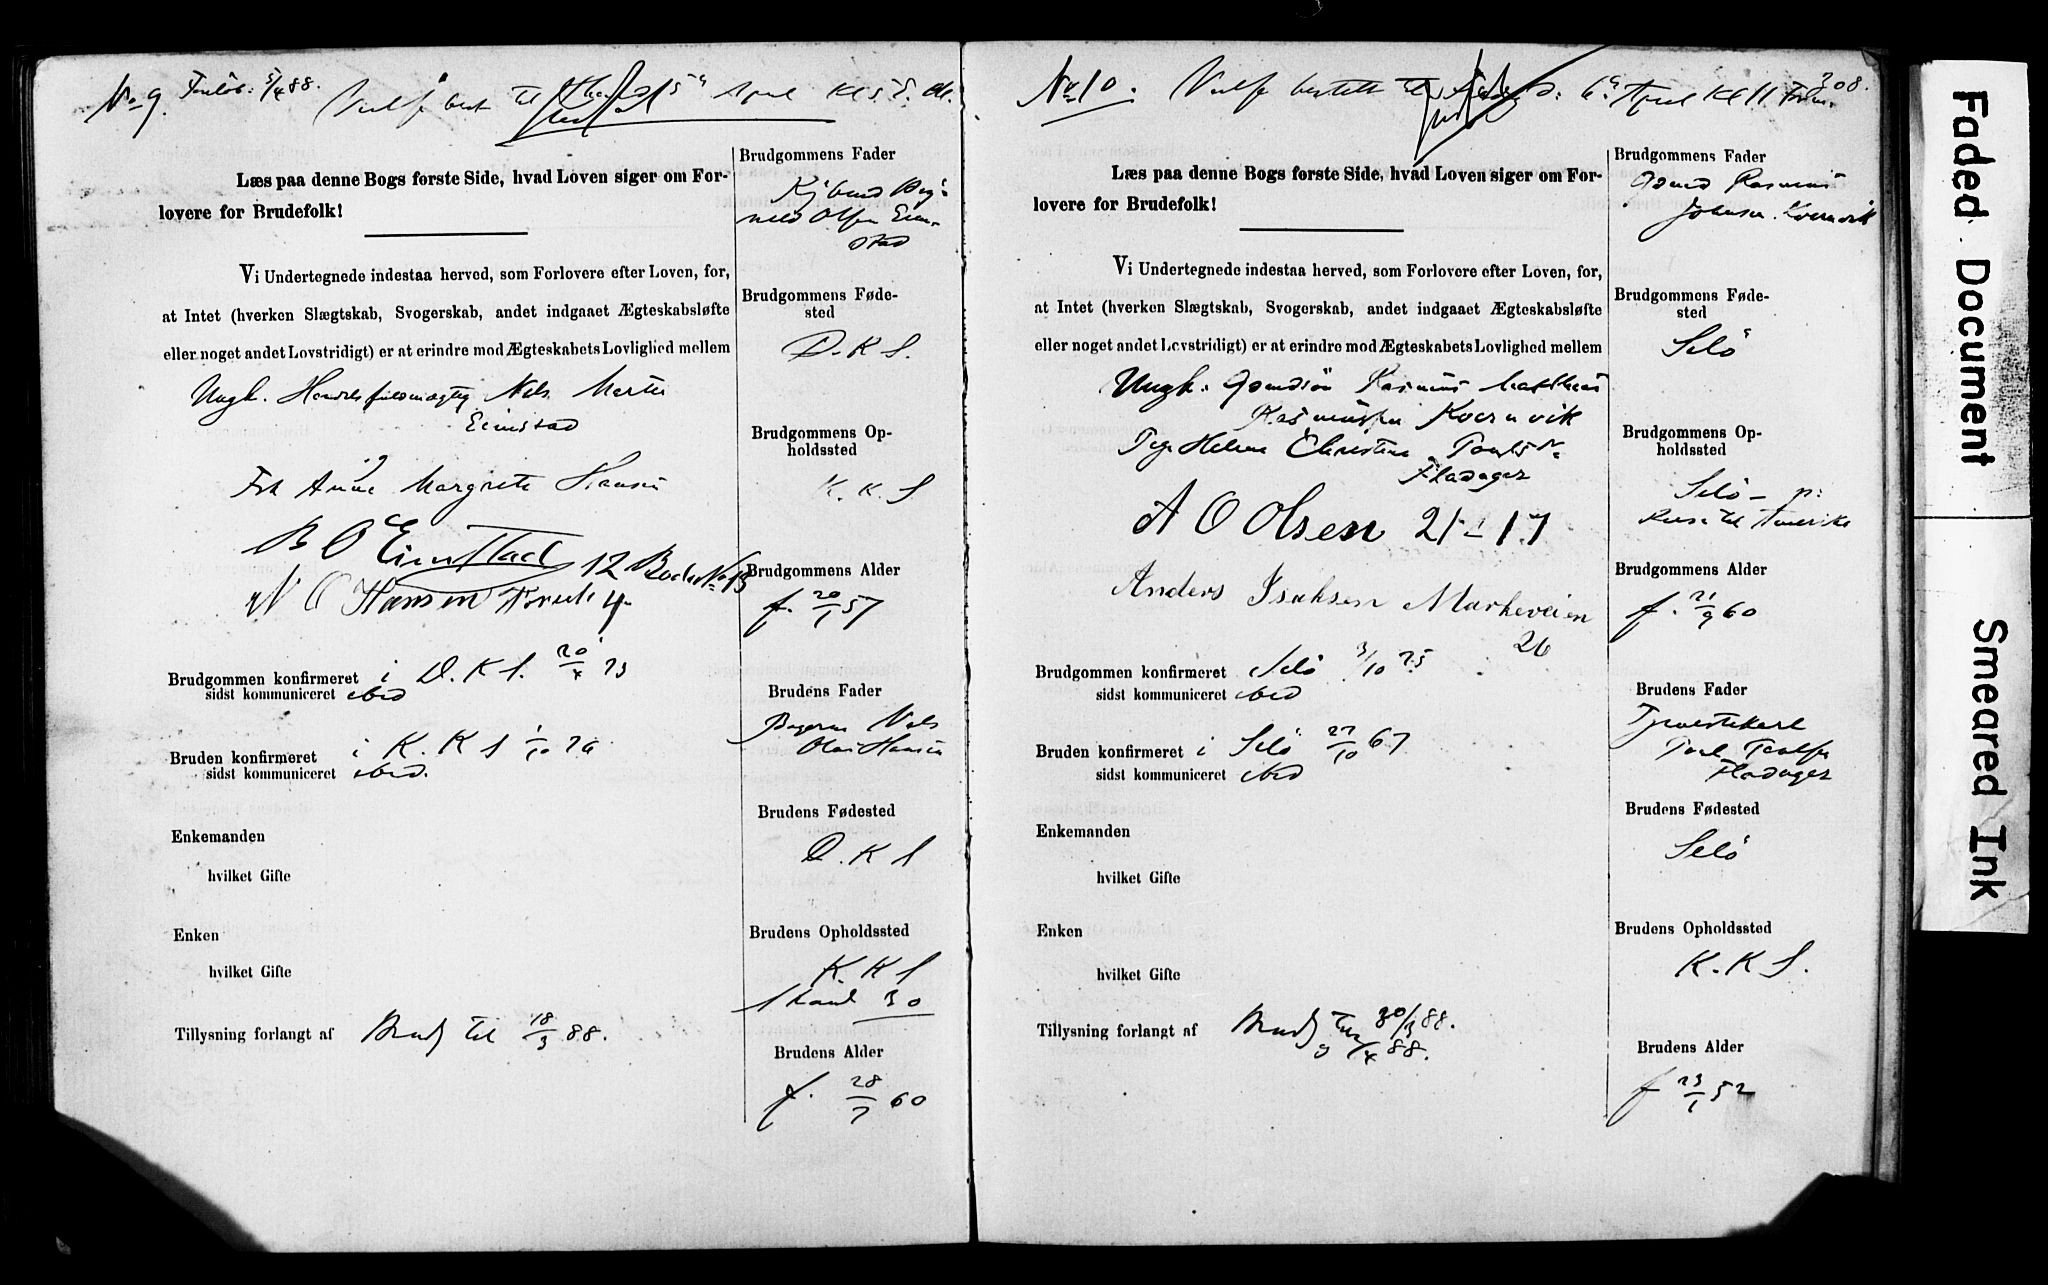 No 9. Forlov. 5/4 88.
Vielse best. til Thorsd. 5te April Kl 5 E. M.
Læs paa denne Bogs første Side, hvad Loven siger om For-
lovere for Brudefolk!
Vi Undertegnede indestaa herved, som Forlovere efter Loven, for,
at Intet (hverken Slægtskab, Svogerskab, andet indgaaet Ægteskabsløfte
eller noget andet Lovstridigt) er at erindre mod Ægteskabets Lovlighed mellem
Ungk. Handelsfuldmægtig Nils Martin
Eimstad
Frk Anne Margrete Hansen
B O Eimstad 12 No 13
N O Hansen 4
Brudgommen konfirmeret i D. K S. 20/4 73
sidst kommuniceret ibid
Bruden konfirmeret i K. K S 1/10 76
sidst kommuniceret ibid.
Enkemanden
hvilket Gifte
Enken
hvilket Gifte
Tillysning forlangt af Brudg til 18/3 88.
Brudgommens Fader
Olsen Eim-
stad
Brudgommens Føde-
sted
D. K S.
Brudgommens Op-
holdssted
K. K. S
Brudgommens Alder
f. 20/1 57
Brudens Fader
Nils
Olai Hansen
Brudens Fødested
D. K S
Brudens Opholdssted
K. K S
Strand 30
Brudens Alder
f. 28/7 60
No 10. Vielse bestilt til 6te April Kl 11 Form.
308.
Læs paa denne Bogs første Side, hvad Loven siger om For-
lovere for Brudefolk!
Vi Undertegnede indestaa herved, som Forlovere efter Loven, for,
at Intet (hverken Slægtskab, Svogerskab, andet indgaaet Ægteskabsløfte
eller noget andet Lovstridigt) er at erindre mod Ægteskabets Lovlighed mellem
Ungk. Gaardsön Rasmus Matthias
Rasmussen Kvernvik
Pige Helene Christine
Fladager
A O Olsen 21-17
Anders Isaksen Markeveien
26
Brudgommen konfirmeret Selö 3/10 75
sidst kommuniceret ibid
Bruden konfirmeret i Selö 27/10 67
sidst kommuniceret ibid
Enkemanden
hvilket Gifte
Enken
hvilket Gifte
Tillysning forlangt af Brudg til 30/3 88.
og 1/4 88.
Brudgommens Fader
Gaardm Rasmus
Johnsen Kvernvik
Brudgommens Føde-
sted
Selö
Brudgommens Op-
holdssted
Selö - p:
Reise til Amerika
Brudgommens Alder
f. 21/9 60
Brudens Fader
Tjenestekarl
Fladager
Brudens Fødested
Selö
Brudens Opholdssted
K. K S.
Brudens Alder
f 23/1 52
Faded Document
Smeared Ink